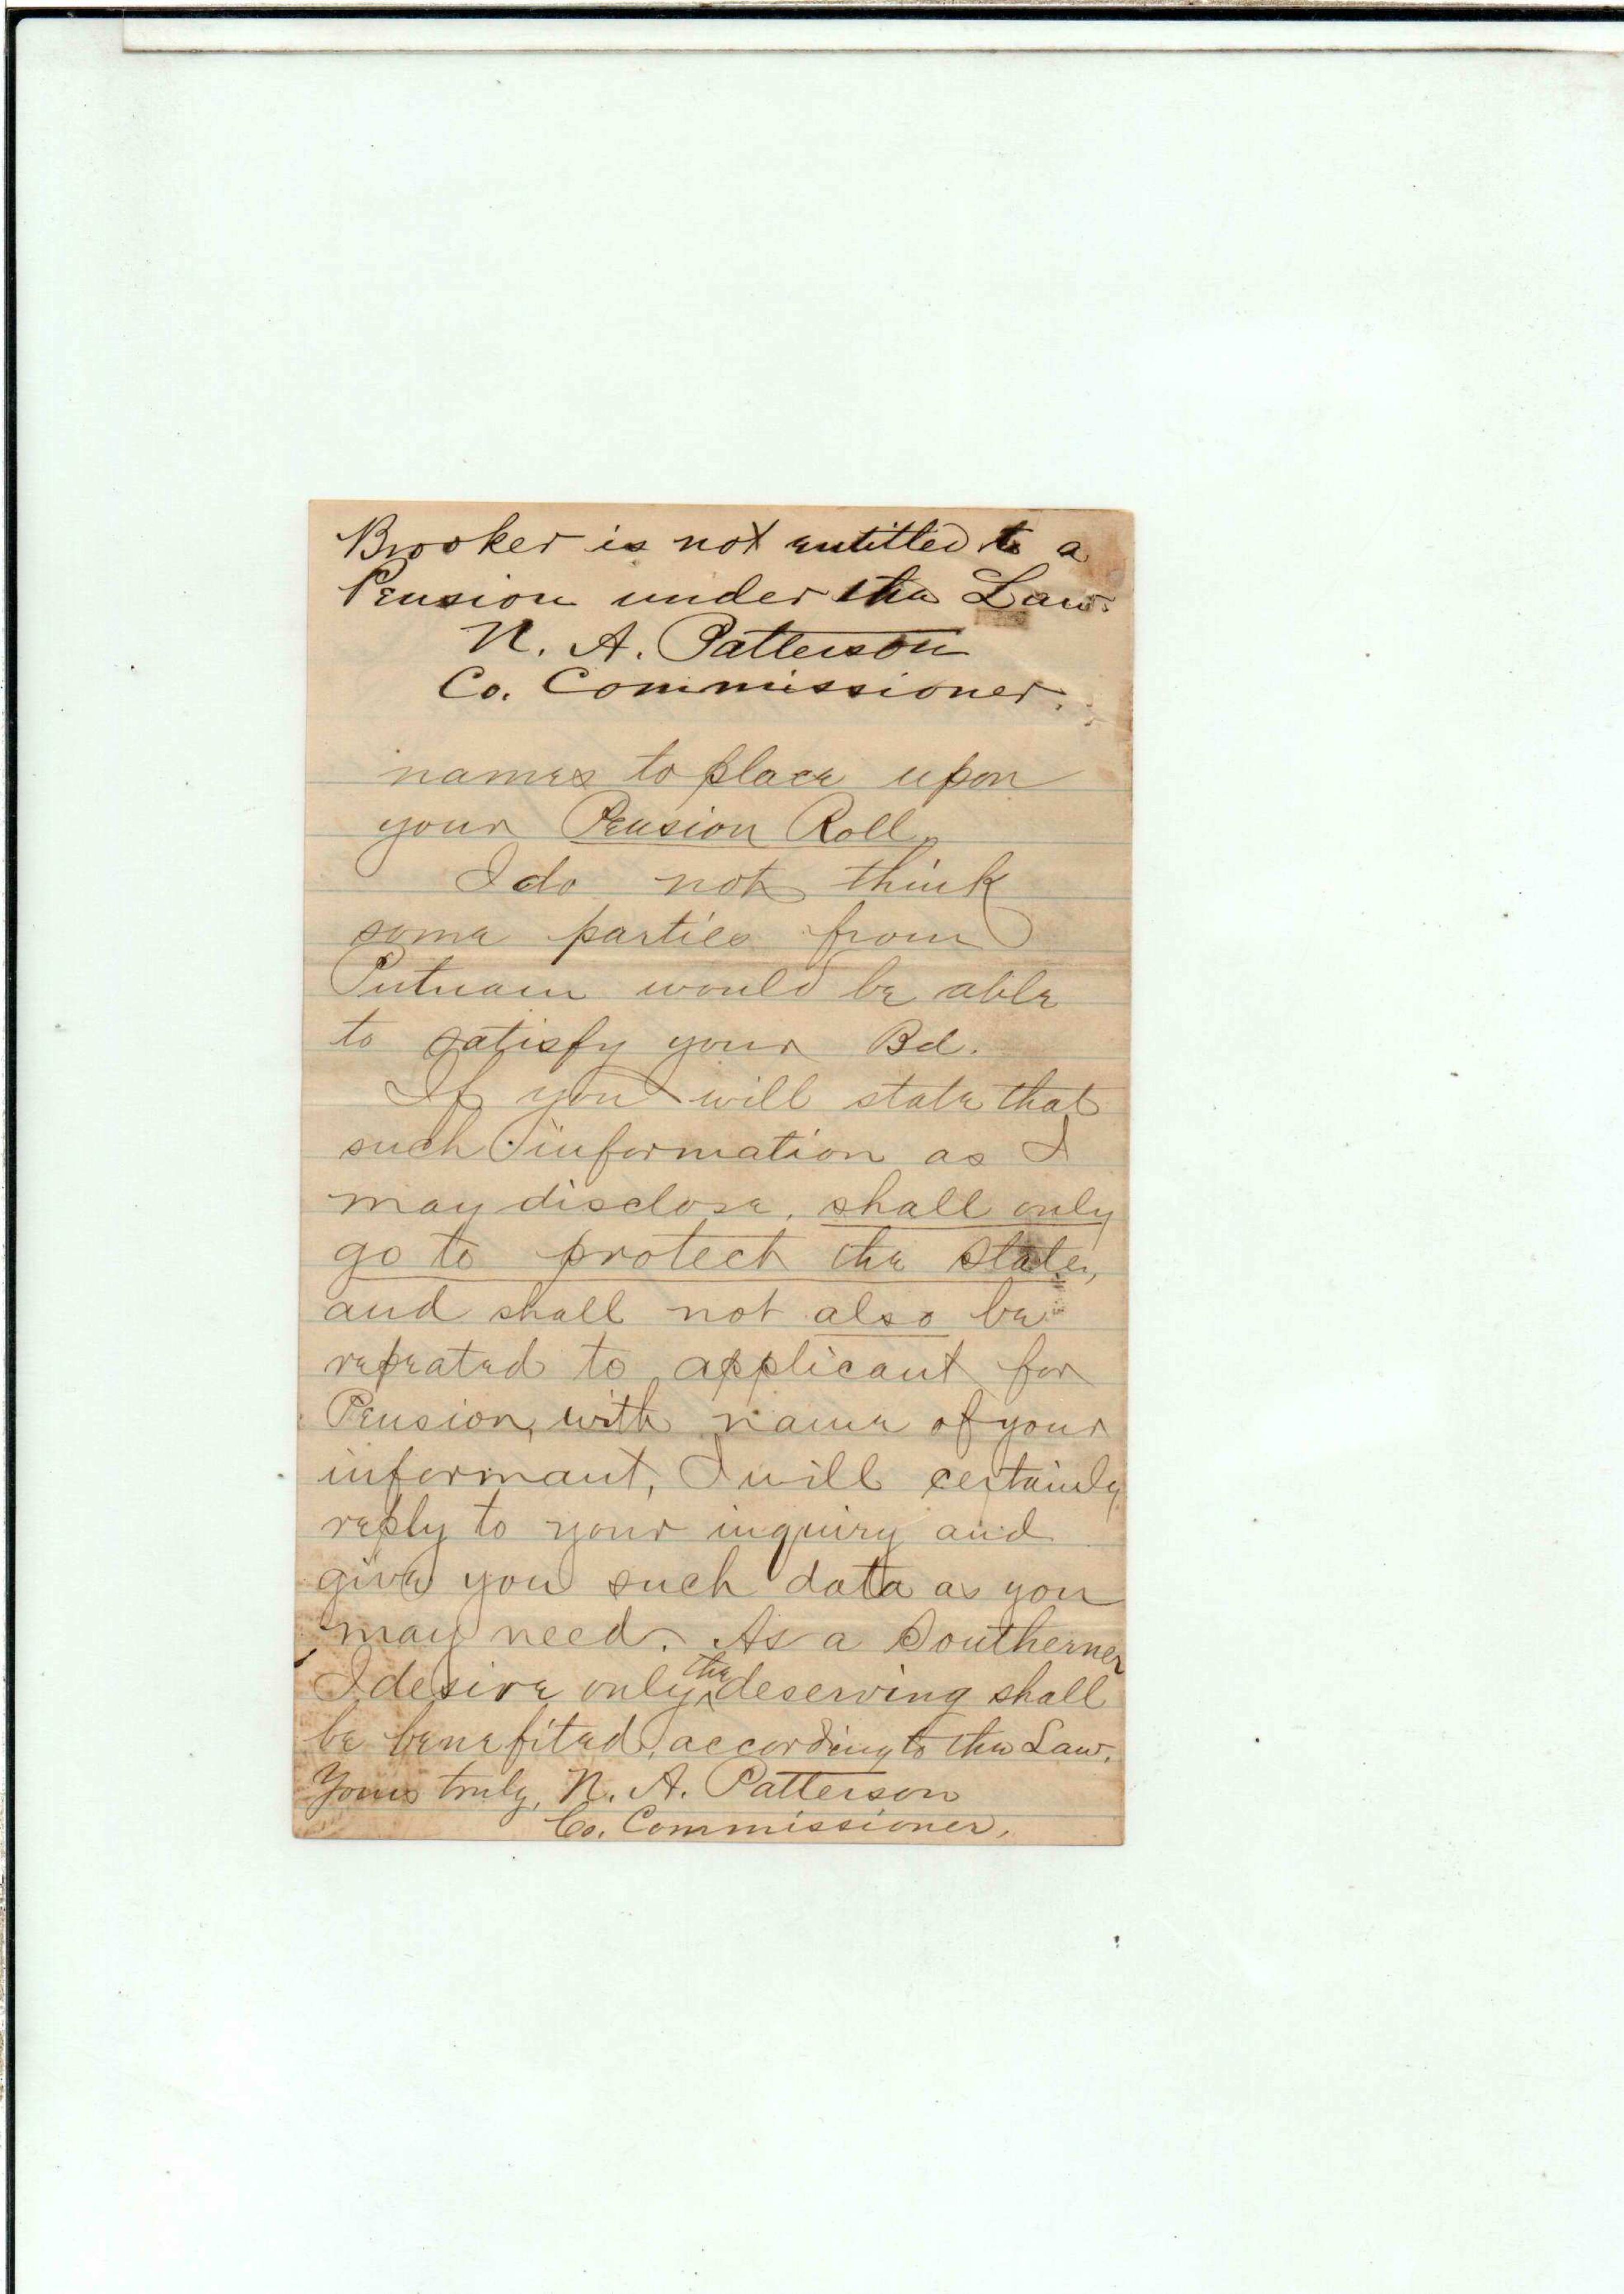 Brooker is not entitled to a
Pension under the Law.
N. A. Patterson
Co. Commissioner.
names to place upon
your Pension Roll.
I do not think
some parties from
Putnam would be able
to satisfy your Bd.
If you will state that
such information as I
may disclose, shall only
go to protect the State,
and shall not also be
repeated to applicant for
Pension, with name of your
informant, I will certainly
reply to your inquiry and
give you such data as you
may need. As a Southerner
I desire only the deserving shall
be benefited, according to the Law.
Yours truly, N. A. Patterson
Co. Commissioner.